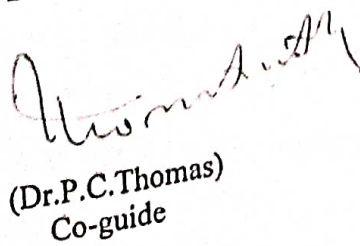 (Dr.P.C.Thomas)
Co-guide